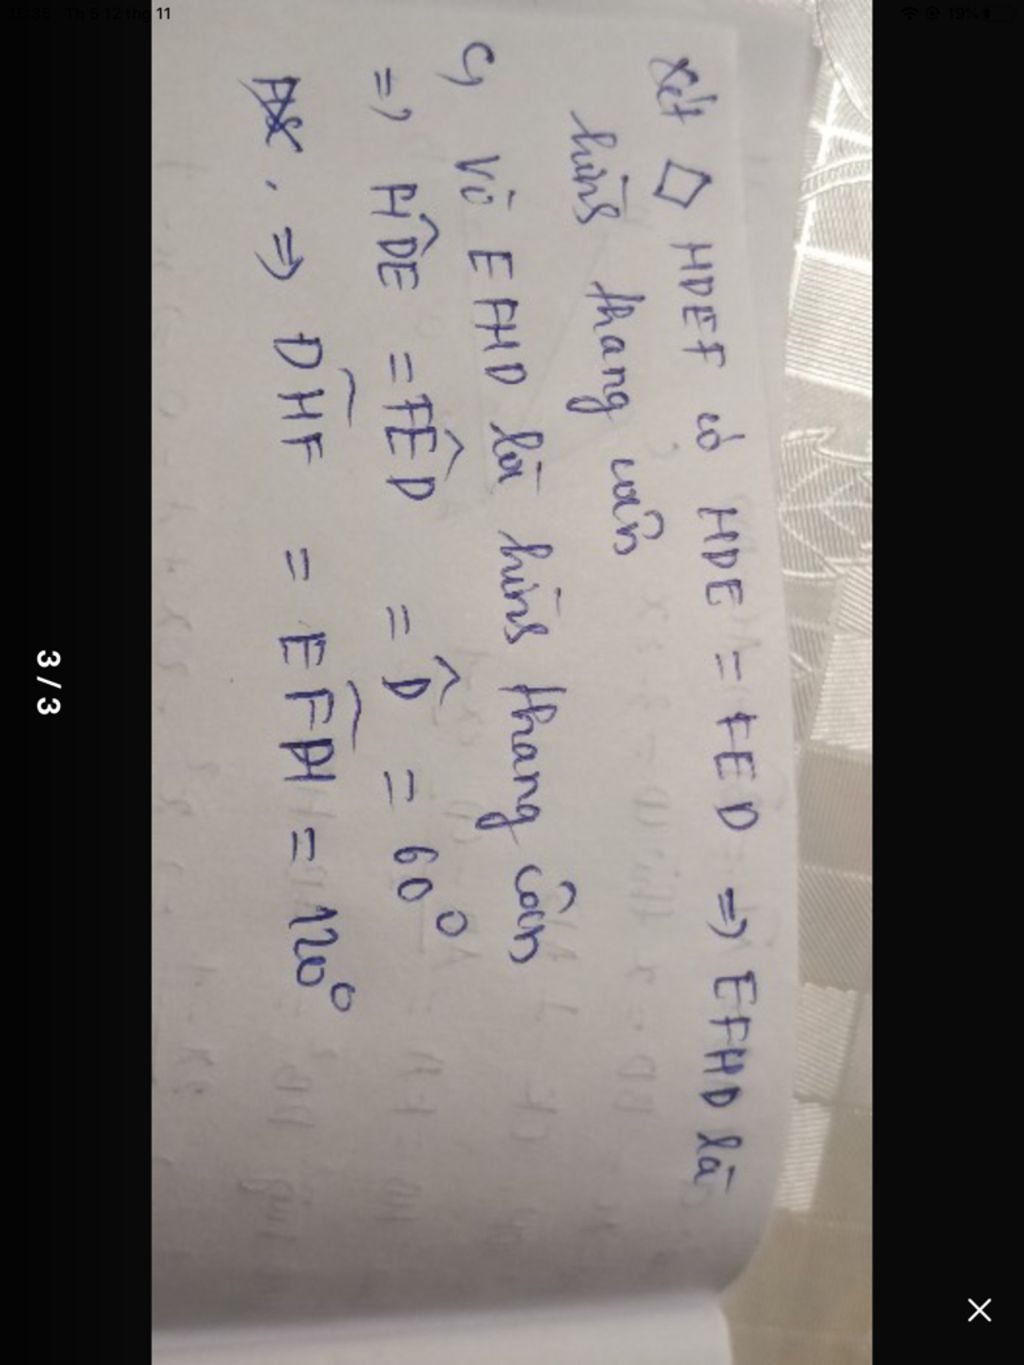 Xét ◇ HDEF có HDE = FED => EFHD là
hình thang cân
c, Vì EFHD là hình thang cân
=> HDE = FED = D = 60°
=> DHF = EFH = 120°
3 / 3
11
19%